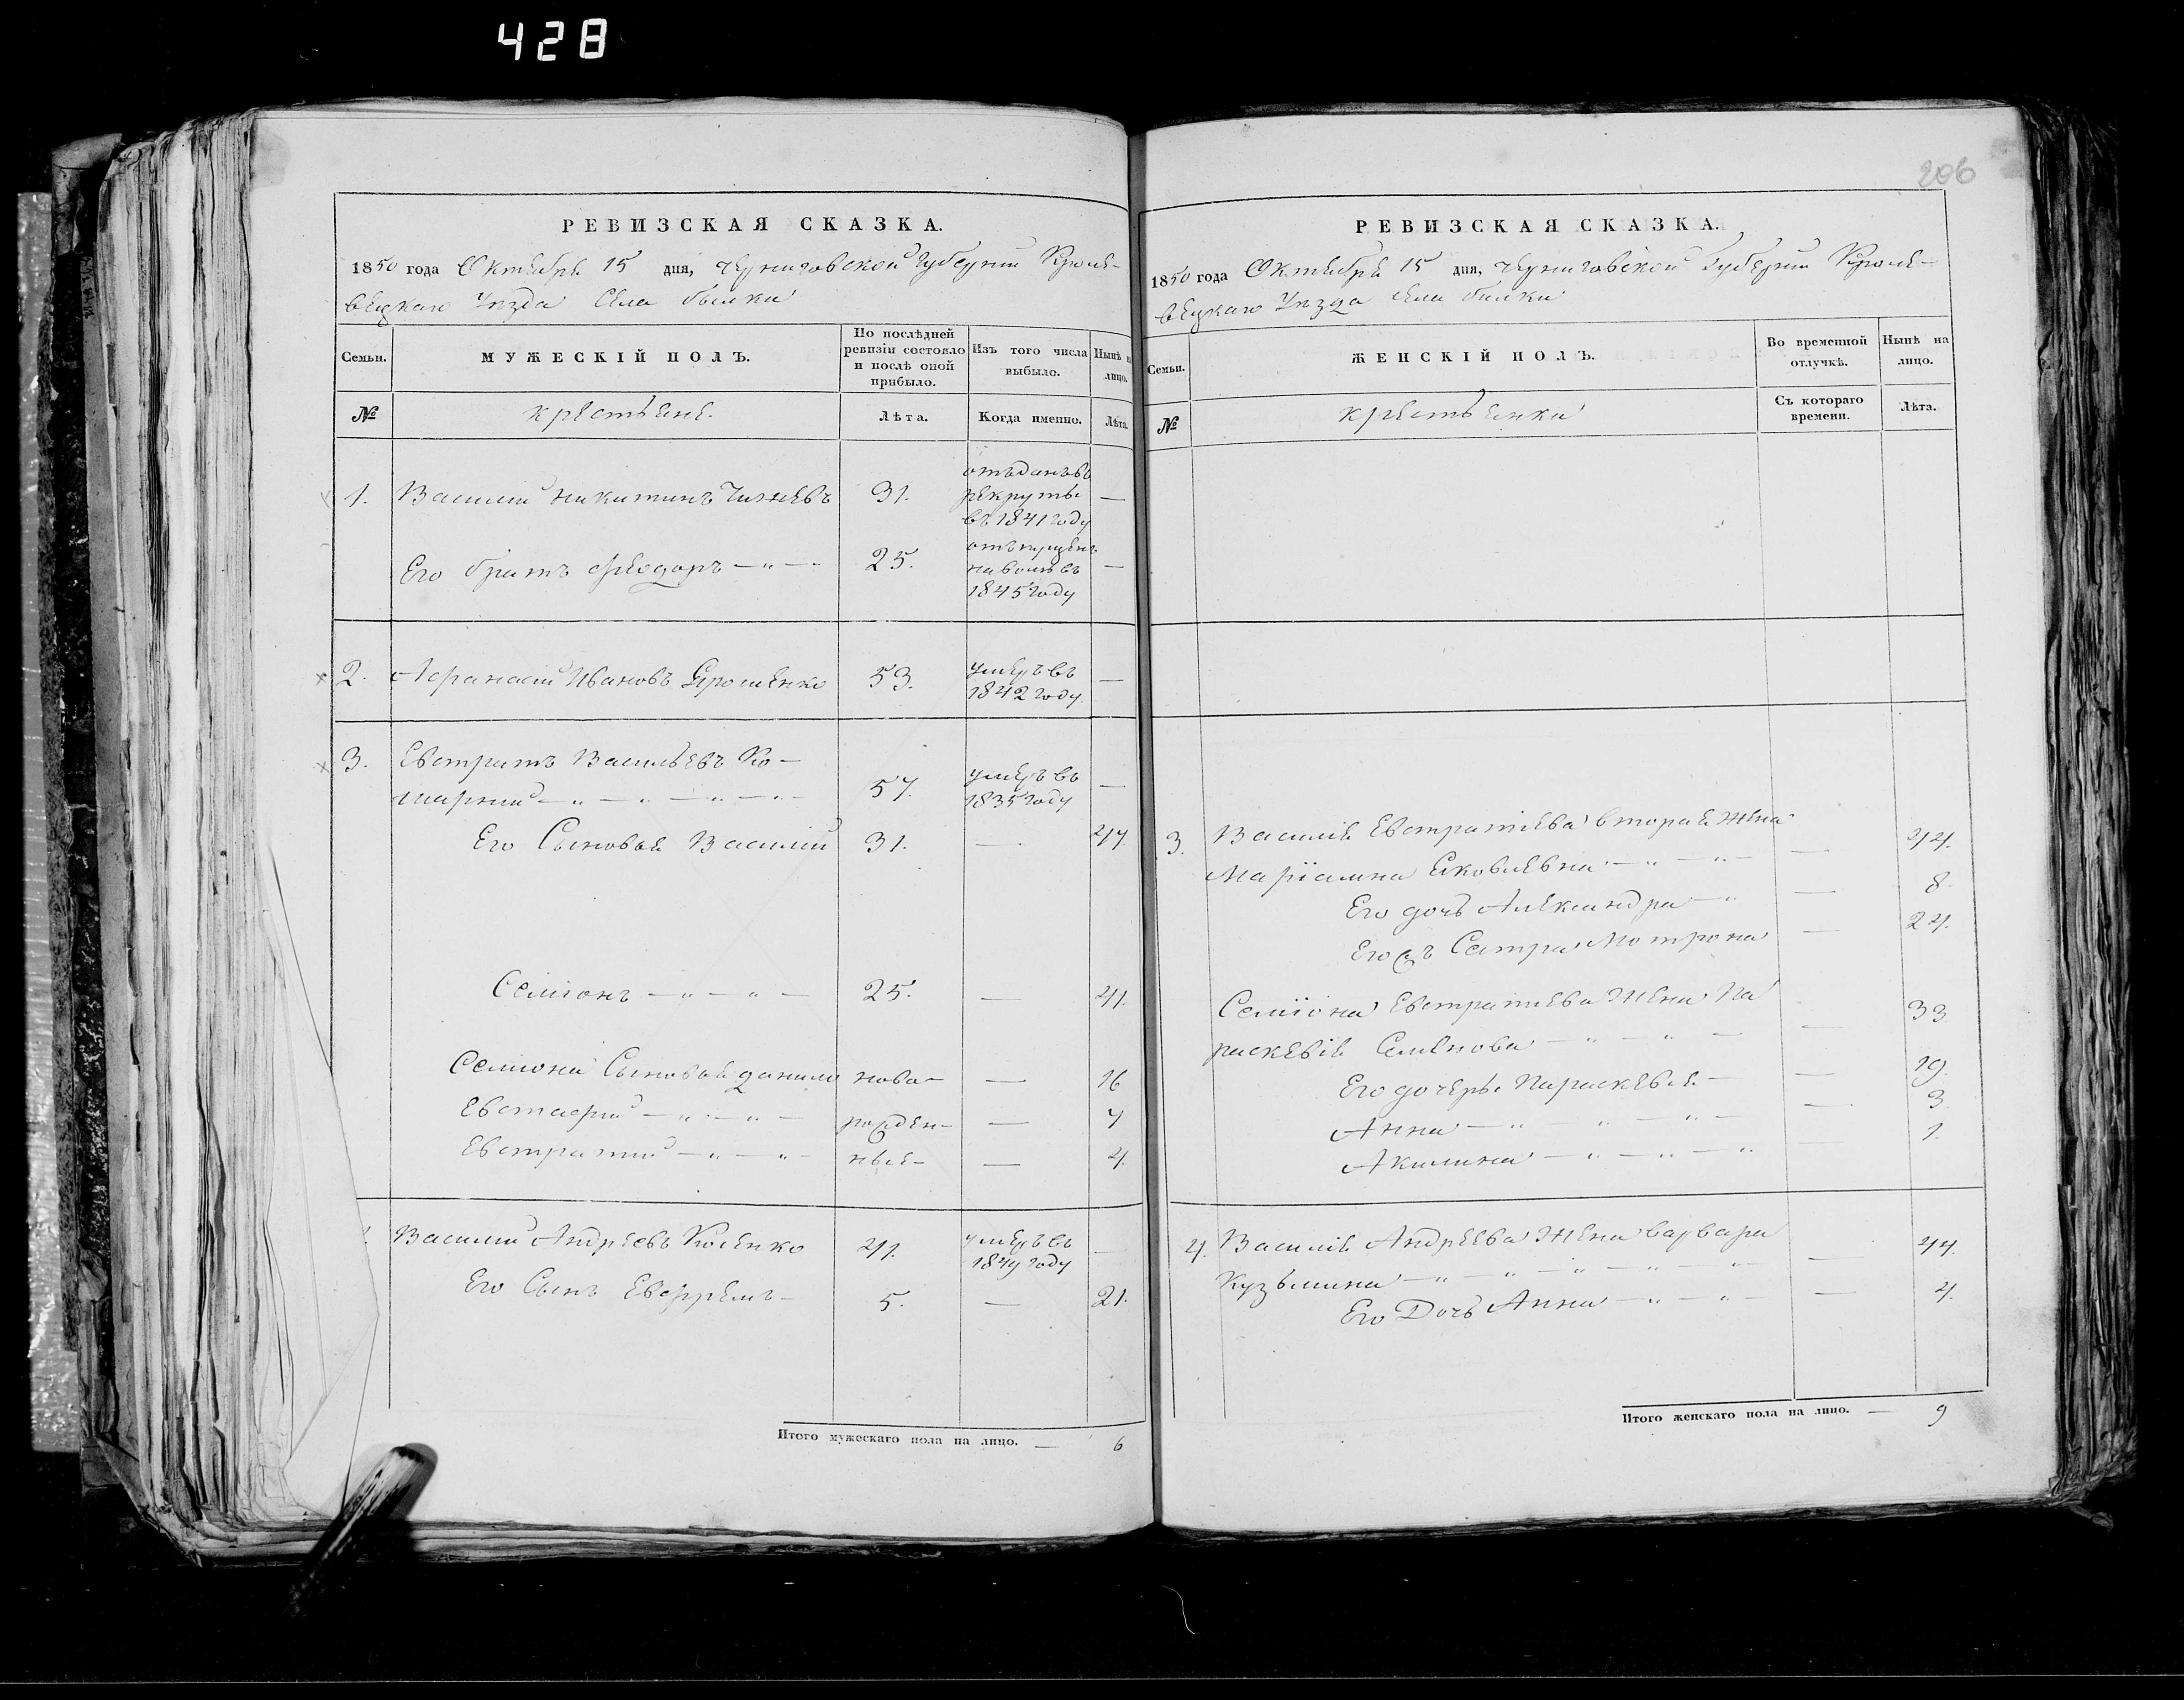 428
РЕВИЗСКАЯ СКАЗКА.
1850 года Октября 15 дня, Черниговской Губернии Кроле-
вецкаго Уезда Села билки
Семьи. МУЖЕСКІЙ ПОЛЪ. По послѣдней ревизіи состояло и послѣ оной прибыло. Изъ того числа выбыло. Нынѣ на лицо.
№ крестьяне. Лѣта. Когда именно. Лѣта.
отъданъ въ
1. Василий Никитинъ 31. рекруты —
въ 1841 году
отъпущенъ
Его братъ Феодоръ — „ — 25. на волю въ —
1845 году
2. Афанасий Ивановъ 53. умеръ въ —
1842 году
3. Евстратъ Васильевъ Ко-
марний — „ — „ — „ — 57. умеръ въ —
1835 году
Его Сыновья Василий 31. — 47.
Семіонъ — „ — „ — 25. — 41.
Семиона Сыновья данило ново- — 16
Евстафий — „ — „ — рожден- — 7
Евстратий — „ — „ — ные- — 4.
Василий Андреевъ 41. умеръ въ —
1849 году
Его Сынъ Евфремъ — 5. — 21.
Итого мужескаго пола на лицо. — 6
206
РЕВИЗСКАЯ СКАЗКА.
1850 года Октября 15 дня, Черниговской Губернии Кроле-
вецкаго Уезда села билки
Семьи. ЖЕНСКІЙ ПОЛЪ. Во временной отлучкѣ. Нынѣ на лицо.
№ крестьянки Съ котораго времени. Лѣта.
3. Василия Евстратиева вторая жена
Маріамна Яковлевна — „ — „ — — 44.
Его дочь Александра — „ — 8.
Его Сестра Мотрона — 24.
Семіона Евстратиева Жена Па
раскевія Семенова — „ — „ — — 33
Его дочеры Параскевия — — 19.
Анна — „ „ — „ — — 3.
Акилина — „ — „ — „ — 1.
4. Василия Андреева Жена варвара
Кузьмина — „ — „ — „ — „ — „ — — 44.
Его Дочь Анна — „ — „ — — 4.
Итого женскаго пола на лицо. — 9